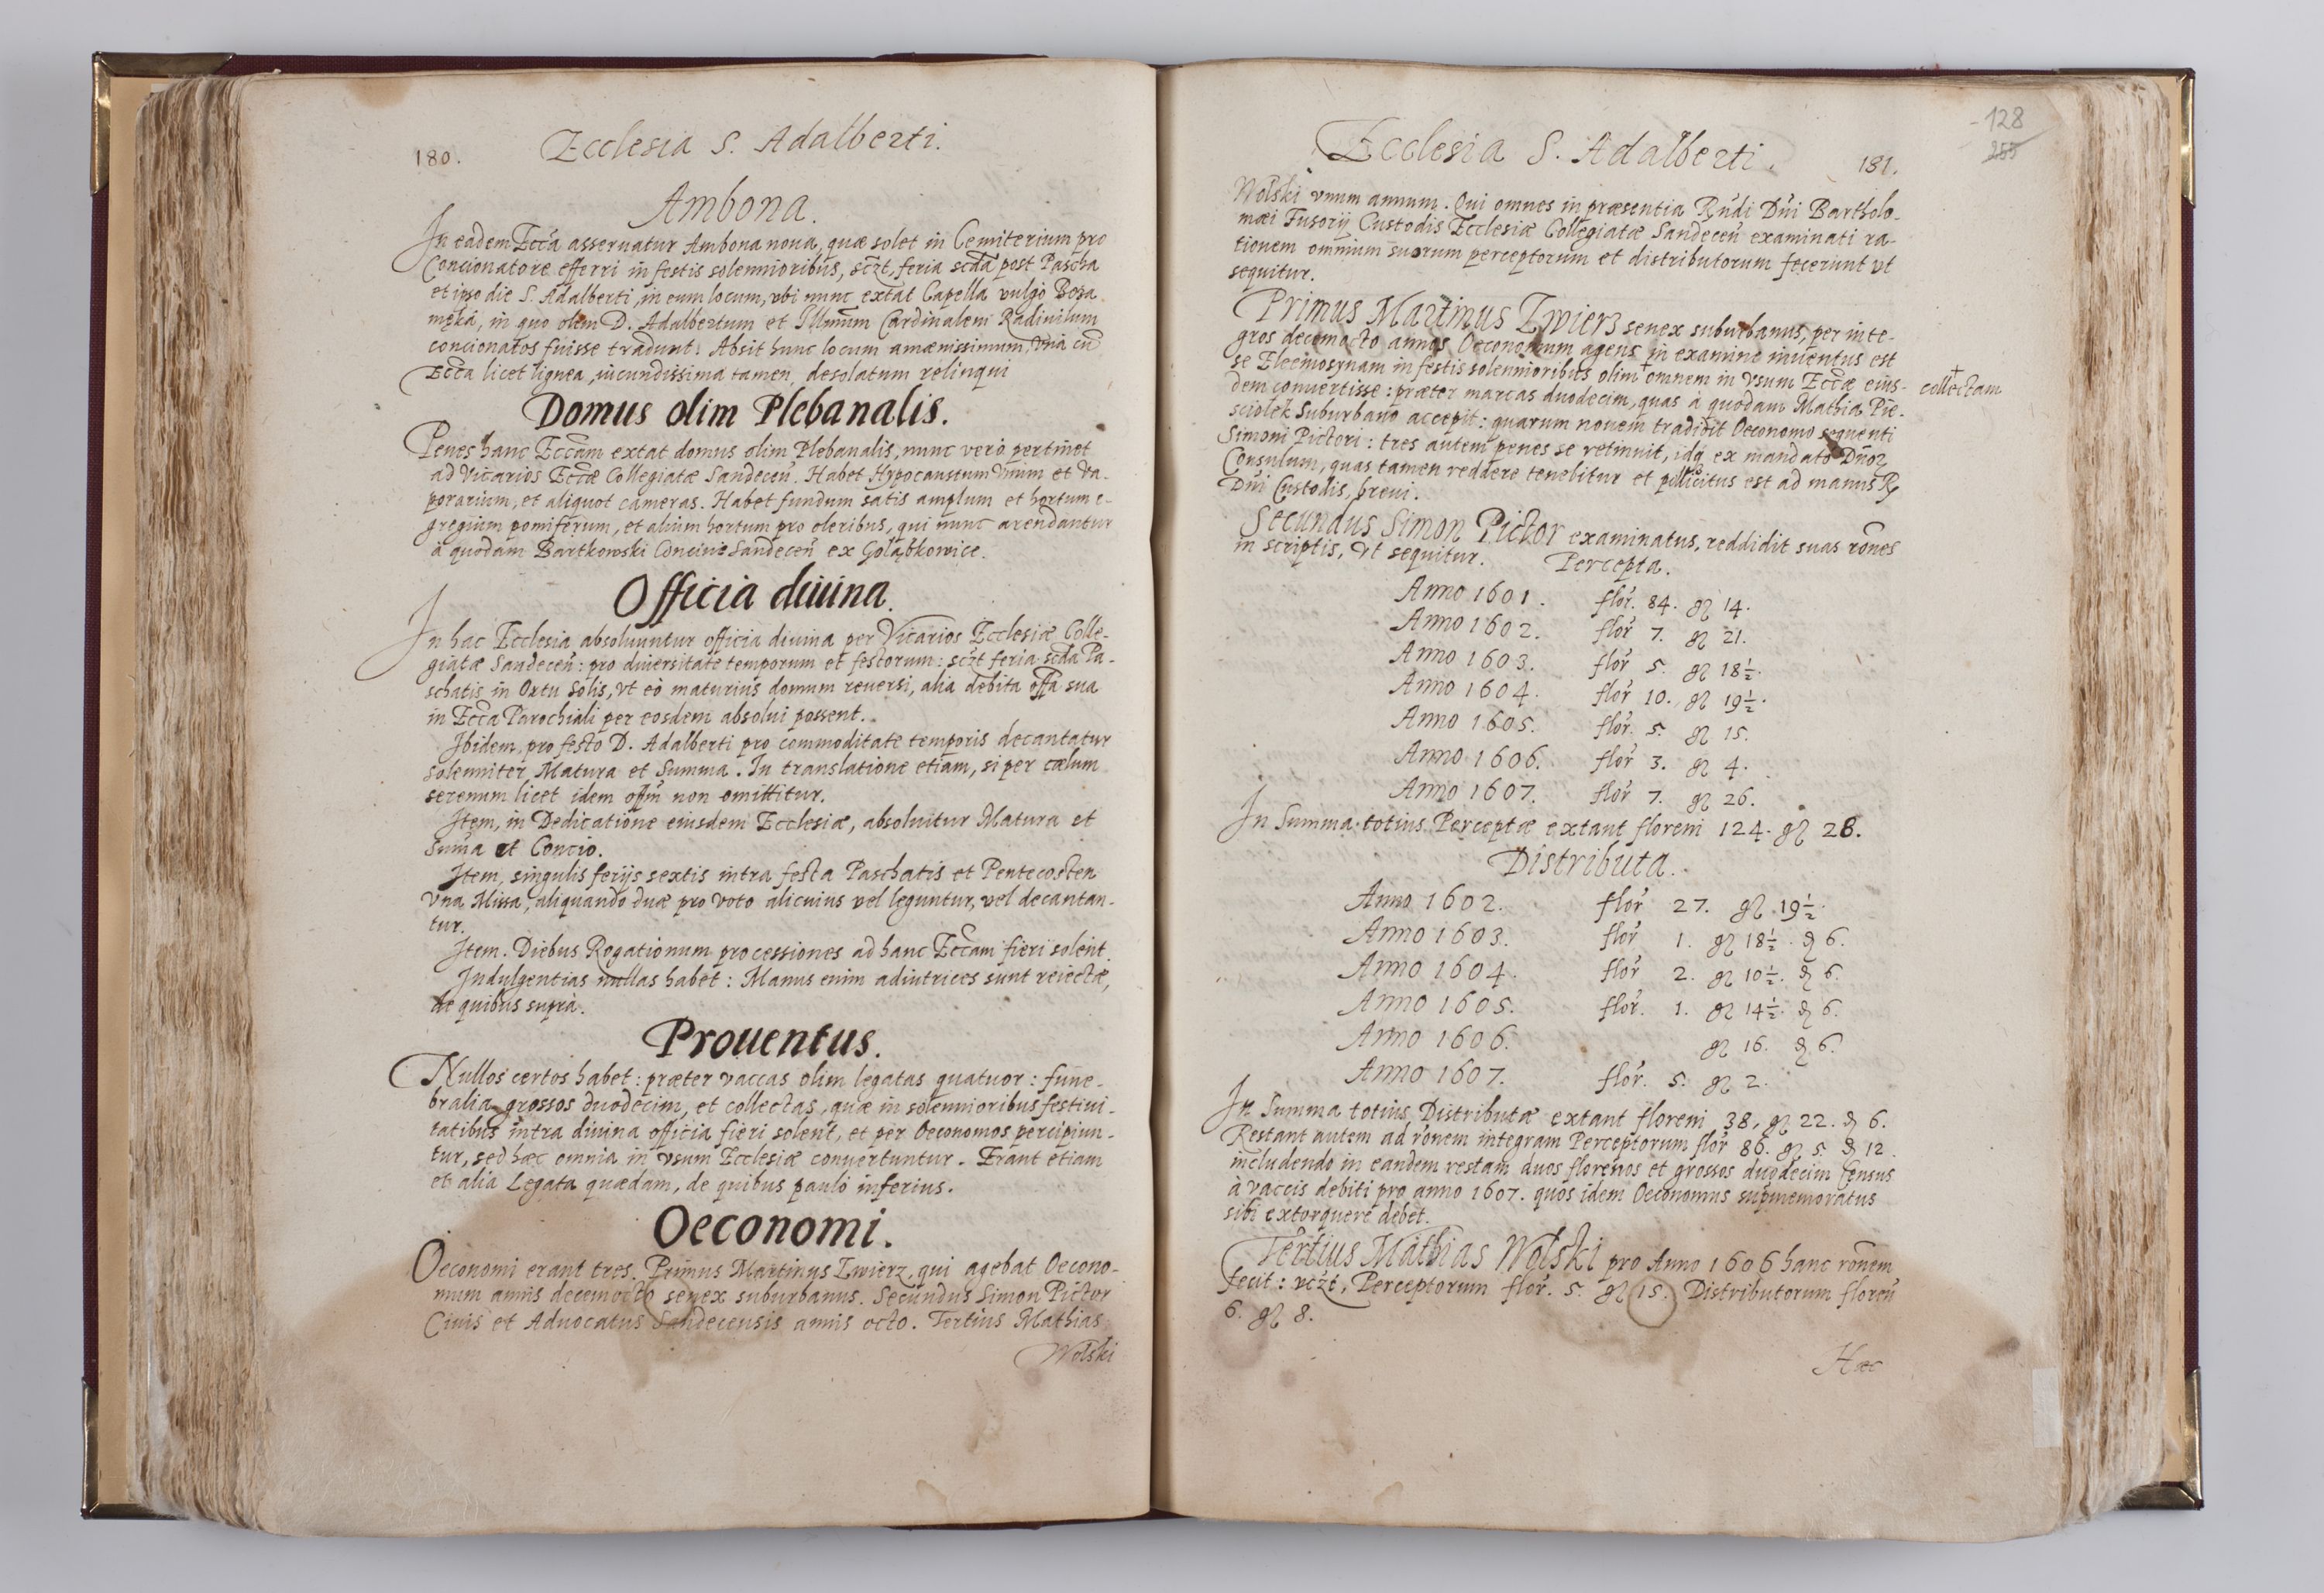 180. Ecclesia S. Adalberti.
Ambona.
In eadem Eccã asseruatur Ambona noua, quæ solet in Cemiterium pro
Concionatore efferri in festis solennioribus, sczt, feria scdã post Pascha
et ipso die S. Adalberti, in eum locum, vbi nunc extat Capella vulgò Boża
męka, in quo olim D. Adalbertum et Illmum Cardinalem Radiuilum
concionatos fuisse tradunt. Absit hunc locum amænissimum, vnà cũ
Eccã licet lignea, iucundissima tamen, desolatum relinqui
Domus olim Plebanalis.
Penes hanc Eccãm extat domus olim Plebanalis, nunc verò pertinet
ad Vicarios Eccæ Collegiatæ Sandeceñ. Habet Hypocaustum vnum et va-
porarium, et aliquot cameras. Habet fundum satis amplum et hortum e-
gregium pomiferum, et alium hortum pro oleribus, qui nunc arendantur
à quodam Bartkowski Sandeceñ ex Gołąbkowice.
Officia diuina.
In hac Ecclesia absoluuntur officia diuina per Vicarios Ecclesiæ Colle-
giatæ Sandeceñ: pro diuersitate temporum et festorum: sczt feria scdã Pa-
schatis in Ortu Solis, vt eò maturius domum reuersi, alia debita offa sua
in Eccã Parochiali per eosdem absolui possent.
Ibidem, pro festo D. Adalberti pro commoditate temporis decantatur
solenniter Matura et Summa. In translatione etiam, si per cælum
serenum licet idem offm̃ non omittitur.
Item, in Dedicatione eiusdem Ecclesiæ, absoluitur Matura et
Sum̃a et Concio.
Item, singulis ferijs sextis intra festa Paschatis et Pentecosten
vna Missa, aliquando duæ pro voto alicuius vel leguntur, vel decantan-
tur.
Item. Diebus Rogationum processiones ad hanc Eccãm fieri solent.
Indulgentias nullas habet: Manus enim adiutrices sunt reiectæ,
de quibus suprà.
Prouentus.
Nullos certos habet: præter vaccas olim legatas quatuor: fune-
bralia grossos duodecim, et collectas, quæ in solennioribus festiui-
tatibus intra diuina officia fieri solent, et per Oeconomos percipiun-
tur, sed hæc omnia in vsum Ecclesiæ conuertuntur. Erant etiam
et alia Legata quædam, de quibus paulò inferius.
Oeconomi.
Oeconomi erant tres. Primus Martinus Zwierz, qui agebat Oecono-
mum annis decemocto senex suburbanus. Secundus Simon Pictor
Ciuis et Aduocatus Sandecensis annis octo. Tertius Mathias
Wolski
Ecclesia S. Adalberti. 181.
128
255
Wolski vnum annum. Qui omnes in præsentia Rñdi Dñi Bartholo-
mæi Fusorij Custodis Ecclesiæ Collegiatæ Sandeceñ examinati ra-
tionem omnium suorum perceptorum et distributorum fecerunt vt
sequitur.
Primus Martinus Zwierz senex suburbanus, per inte-
gros decemocto annos Oeconomum agens in examine inuentus est
se Eleemosynam in festis solennioribus olim omnem in vsum Eccæ eius-
+ collectam
dem conuertisse: præter marcas duodecim, quas à quodam Mathia Pie-
sciolek Suburbano accepit: quarum nouem tradidit Oeconomo sequenti
Simoni Pictori: tres autem penes se retinuit, idq ex mandato Dñoꝝ
Consulum, quas tamen reddere tenebitur et pollicitus est ad manus R
Dñi Custodis, breui.
Secundus Simon Pictor examinatus, reddidit suas rones
in scriptis, vt sequitur. Percepta.
Anno 1601. flor. 84. gꝝ 14.
Anno 1602. flor 7. gꝝ 21.
Anno 1603. flor 5. gꝝ 18½.
Anno 1604. flor 10. gꝝ 19½.
Anno 1605. flor. 5. gꝝ 15.
Anno 1606. flor 3. gꝝ 4.
Anno 1607. flor 7. gꝝ 26.
In Summa totius Perceptæ extant floreni 124. gꝝ 28.
Distributa.
Anno 1602. flor 27. gꝝ 19½.
Anno 1603. flor 1. gꝝ 18½. ₰ 6.
Anno 1604. flor 2. gꝝ 10½. ₰ 6.
Anno 1605. flor. 1. gꝝ 14½. ₰ 6.
Anno 1606. gꝝ 16. ₰ 6.
Anno 1607. flor. 5. gꝝ 2.
In Summa totius Distributæ extant floreni 38, gꝝ 22. ₰ 6.
Restant autem ad ronem integram Perceptorum flor 86. gꝝ 5. ₰ 12.
includendo in eandem restam duos florenos et grossos duodecim Census
à vaccis debiti pro anno 1607. quos idem Oeconomus supmemoratus
sibi extorquere debet.
Tertius Mathias Wolski pro Anno 1606 hanc ronem
fecit: vczt, Perceptorum flor. 5. gꝝ 15. Distributorum floreñ
6. gꝝ 8.
Hæc